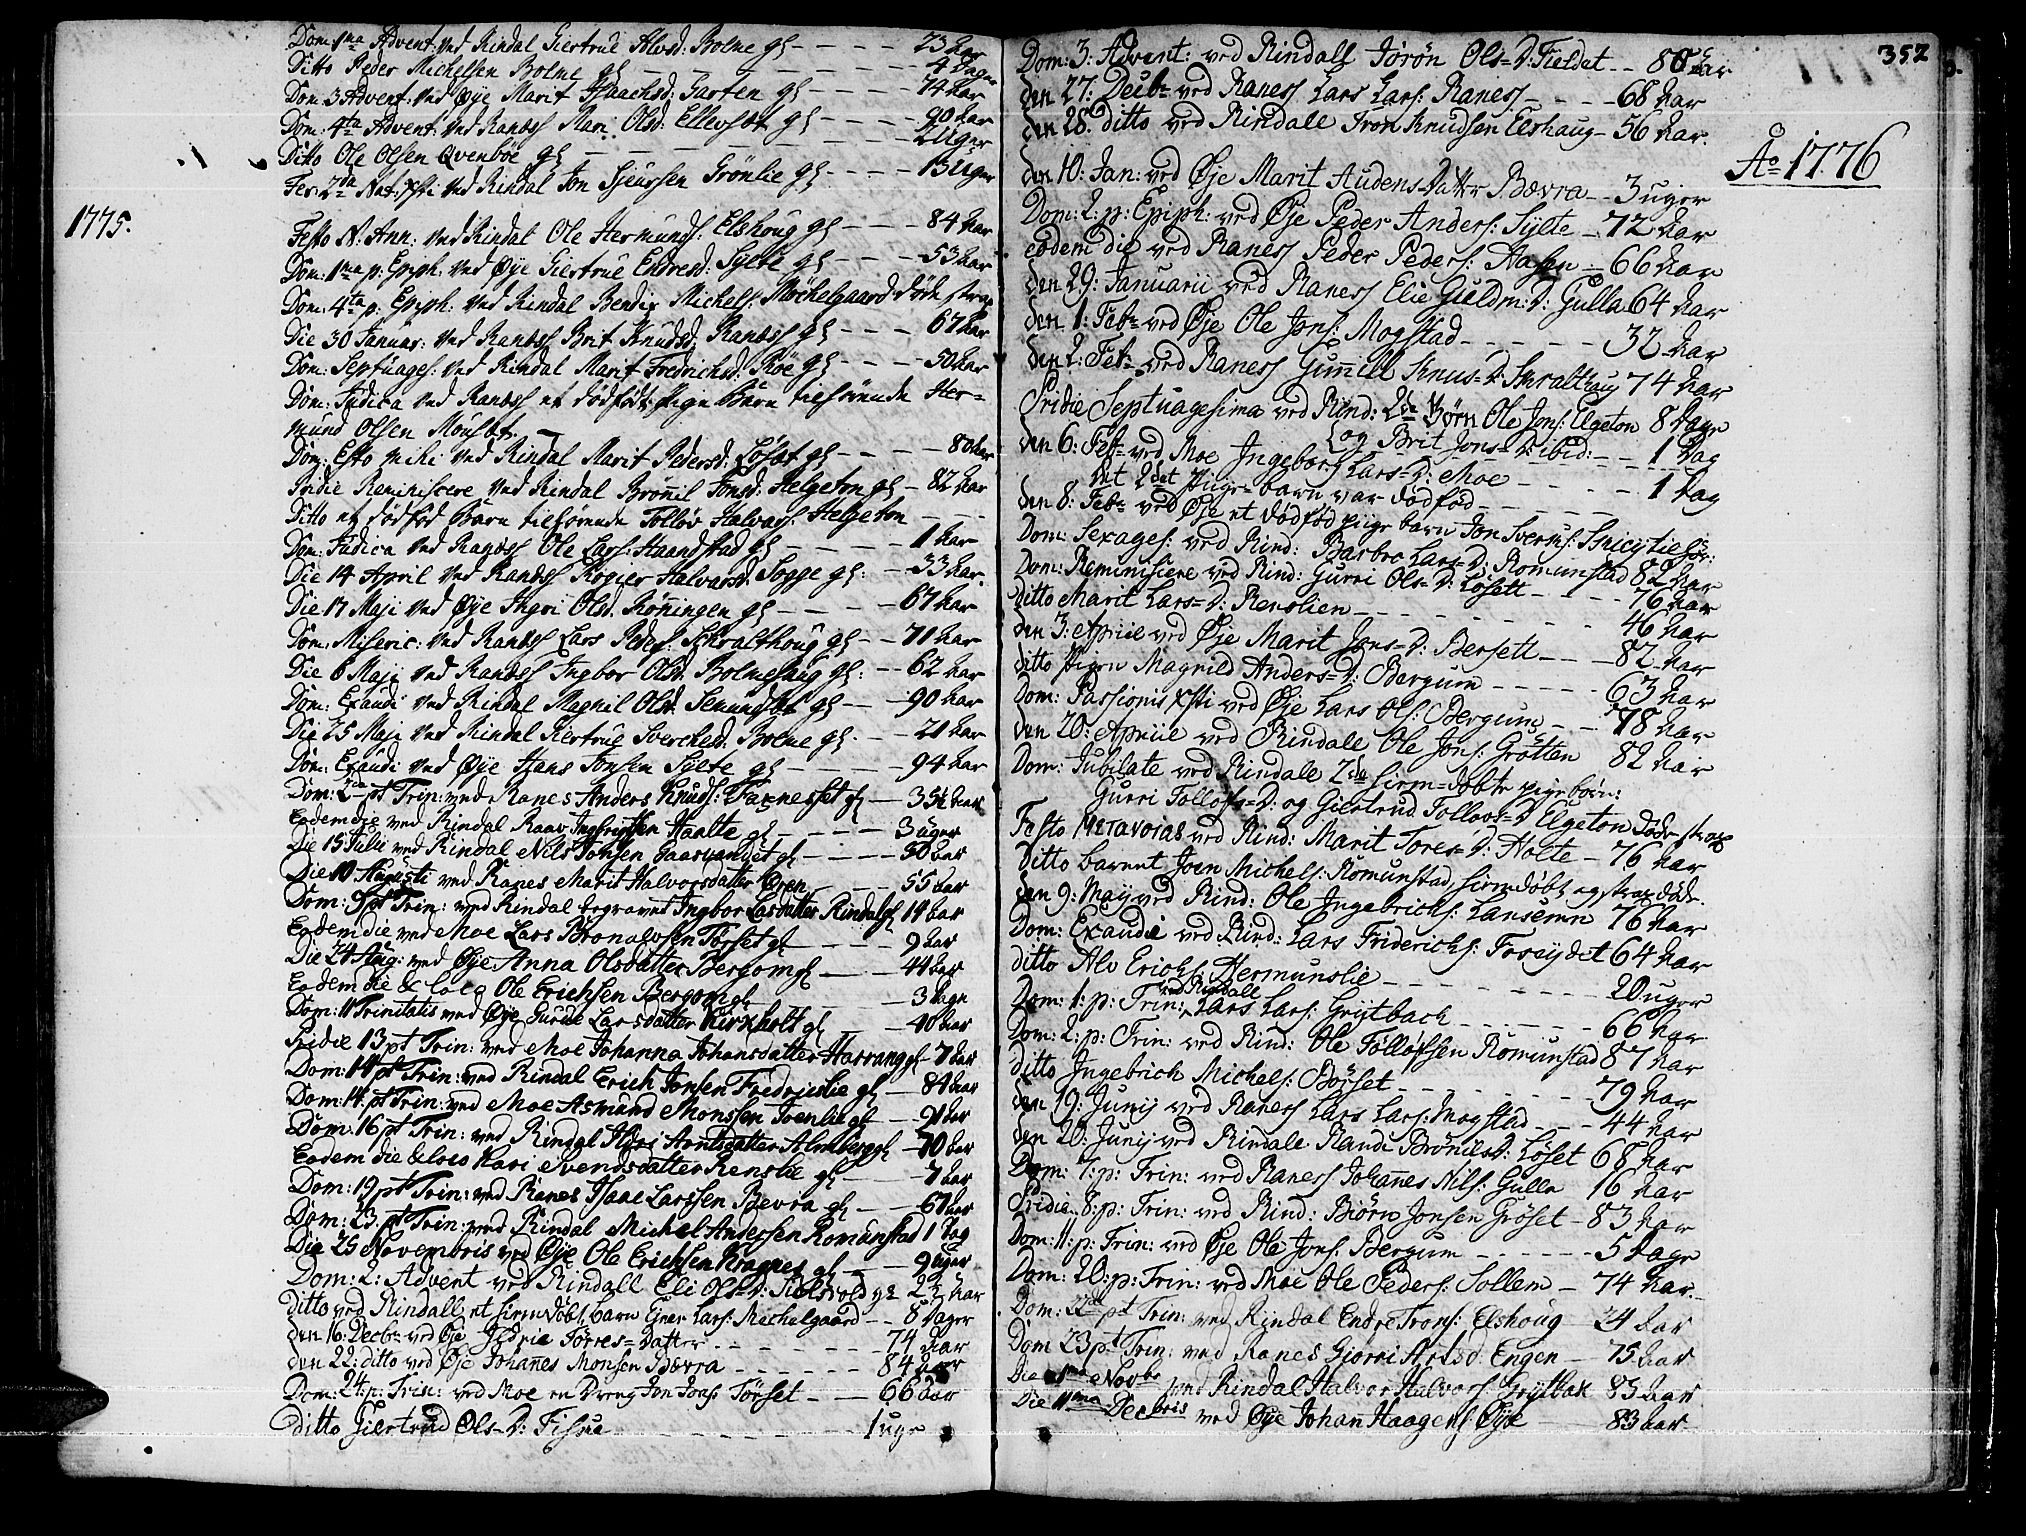 Dom: 1ma Advent: ved Rindal Giertrue Alvsd: Bolme gl - - - - 23 Aar
Ditto Peder Michelsen Bolme gl - - - 4 Dager
Dom: 3 Advent: ved Øye Marit Isaachsd: Garten gl - - - 74 Aar
Dom: 4ta Advent: ved Ranæss Mari Olsd: Ellevset gl - - - 90 Aar
Ditto Ole Olsen Qvenbøe gl - - - 2 Uger
Fer: 2da Nat: Xsti ved Rindal Jon Sjeursen Grönlie gl - - - 13 Uger
1775.
Festo N: Ann: ved Rindal Ole Hermunds: Elshoug gl - - - 84 Aar
Dom: 1ma p: Epiph: ved Øye Giertrue Endresd: Sylte gl - - - 53 Aar
Dom: 4ta p: Epiph: ved Rindal Bendix Michels: Mochelgaard döde strax
Die 30 Januar: ved Ranæss Brit Knudsd: Ranæss gl - - - 67 Aar
Dom: Septuages: ved Rindal Marit Fredrichsd: Röe gl - - - 50 Aar
Dom: Judica ved Ranæss et dödfödt Pige Barn tilhörende Her=
mund Olsen Mouset.
Dom: Esto mihi ved Rindal Marit Pedersd: Löset gl - - - 80 Aar
Pridie Reminiscere ved Rindal Brönil Jonsd: Helgeton gl - 82 Aar
Ditto et dödfød Barn tilhörende Tolløv Halvors: Helgeton - - -
Dom: Judica ved Ranæss Ole Lars: Haandstad gl - - - 1 Aar
Die 14 April ved Ranæss Rogier Halvorsd: Sogge gl: - 33 Aar.
Die 17 Maji ved Øye Ingri Olsd: Röningen gl - - - 67 Aar
Dom: Miseric: ved Ranæss Lars Peders: Schralthoug gl - - 71 Aar
Die 6 Maji ved Ranæss Ingbor Olsd: Bolmehaug gl: - - 62 Aar
Dom: Exaudi ved Rindal Magnil Olsd: Semundset gl - - 90 Aar
Die 25 Maji ved Rindal Giertrue Sverchesd: Bolme gl - - - 21 Aar
Dom: Exaudi ved Øye Hans Jonsen Sylte gl - - - 94 Aar
Dom: 2 pt Trin: ved Ranes Anders Knuds: Faxnesset gl - 35½ Aar
Eodem die ved Rindal Raav Ingbrigtsen Haalte gl - - - 3 uger
Die 15 Julii ved Rindal Nils Jonsen Gaasvandset gl - - - 50 Aar
Die 10 Augusti ved Ranes Marit Halvorsdatter Øren - - - 55 Aar
Dom: 9 pt Trin: ved Rindal begravet Ingbor Larsdatter Rindal gl 14 Aar
Eodem die ved Moe Lars Bronalvsen Törset gl - - - 9 Aar
Die 24 Aug: ved Øye Anna Olsdatter Bergom gl - - 44 Aar
Eodem die & loco Ole Erichsen Bergom gl - - - 3 dage
Dom: 11 Trinitatis ved Øye Gurue Larsdatter Kirkholt gl - 40 Aar
Pridie 13 pt Trin: ved Moe Johanna Johansdatter Harrang gl - 7 Aar
Dom: 14 pt Trin: ved Rindal Erich Jonsen Fredrieslie gl - 84 Aar
Dom: 14: pt Trin: ved Moe Asmund Monssen Toenlie gl - 91 Aar
Dom: 16 pt Trin: ved Rindal Kari Arntsdatter Almberg gl - 70 Aar
Eodem die & loco Kari Svendsdatter Renslie gl - - 7 Aar
Dom: 19 pt Trin: ved Ranes Isaac Larssen Bevra gl - - 67 Aar
Dom: 23. pt Trin: ved Rindal Michel Andersen Romunstad 1 dag
Die 25 Novembris ved Øye Ole Erichsen Kragnes gl - - 9 uger
Dom: 2: Advent ved Rindall Eli Ols=D: Fielsvold gl 23 Aar
Ditto ved Rindall et hiemdöbt barn Ejner Lars: Mechelgaard - - 8 dager
den 16: Decbr: ved Øje Jedria Törres=datter - - - 74 Aar
den 22: ditto ved Øje Johañes Monsen Bævra - - - 84 Aar
Dom: 24: p: Trin: ved Moe en Dreng Jon Jons: Törset - - 66 Aar
ditto Giertrud Ols=D: Fiskia - - - 1 uge
352
Dom: 3. Advent: ved Rindall Jörön Ols=D: Fieldet - - 80 Aar
den 27: Decbr ved Raness Lars Lars: Raness - - - 68 Aar
den 28: ditto ved Rindale Tron Knudsen Elshaug - 56 Aar.
Ao 1776
den 10: Jan: ved Øje Marit Audens=datter Bævra - - 3 uger
Dom: 2: p: Epiph: ved Øje Peder Anders: Sylte - 72 Aar
eodem die ved Raness Peder Peders: Aasen - 66 Aar
den 29: Januarii ved Raness Elie Guldm: D: Gulla 64 Aar
den 1: Febr ved Øje Ole Jons: Mogstad - - - 32 Aar
den 2: Febr ved Raness Guñild Knus=D: Skralthaug 74 Aar
Pridie Septuagesima ved Rind: 2de Börn Ole Jons: Elgeton 8 dage
og Brit Jons=D: ibid: - - 1 dag
den 6: Febr ved Moe Ingeborg Lars=D: Moe - - - 1 dag
det 2det Pige-barn var dödföd - - -
den 8: Febr ved Øje et dödföd pige barn Jon Sverkes: tilhör:
Dom: Sexages: ved Rind: Barbro Lars=D: Romunstad 82 Aar
Dom: Reminisiere ved Rind: Gurri Ols=D: Lösett - - - 76 Aar
ditto Marit Lars=D: Renslien - - - 46 Aar
den 3: Apriil ved Øje Marit Jons=D: Bersett - - - 82 Aar
ditto Pigen Magnild Anders=D: Bergum - - - 63 Aar
Dom: Passionis Xsti ved Øje Lars Ols: Bergum - - 78 Aar
den 20: Apriil ved Rindale Ole Jons: Gröttan 82 Aar
Dom: Jubilate ved Rindale 2de hiem=döbte pige börn:
Gurri Tollofs=D: og Giertrud Tollovs=D: Elgeton döde strax
Festo μετανοιας ved Rind: Marit Tores=D: Holte - 76 Aar
Ditto barnet Joen Michels: Romunstad hiemdöbt og strax döde.
den 9: Maij ved Rind: Ole Ingebrichs: Lansemn 76 Aar
Dom: Exaudie ved Rind: Lars Friderichs: Foseydet 64 Aar
ditto Alv Erichs: Hermunslie - - - 20 uger
Dom: 1: p: Trin: ved Rindale Lars Lars: Grytbach - - - 66 Aar
Dom: 2: p: Trin: ved Rind: Ole Tölløfsen Romunstad 87 Aar
ditto Ingebrich Michels: Börset - - - 79 Aar
den 19: Junij ved Raness Lars Lars: Mogstad - - - 44 Aar
den 20: Junij ved Rindale Randi Brönils D: Löset 68 Aar
Dom: 7: p: Trin: ved Raness Johañes Nils: Gulla 16 Aar
Pridie 8: p: Trin: ved Rind: Biörn Jonsen Gröset - 83 Aar
Dom: 11: p: Trin: ved Øje Ole Jons: Bergum - - - 5 dage
Dom: 20: p: Trin: ved Moe Ole Peders: Sollem - 74 Aar
Dom: 22de pt Trin: ved Rindal Endre Trons: Elshoug 24 Aar
Dom 23 pt Trin: ved Ranes Giorri Arlsd: Engen - 75 Aar
Die Novbr ved Rindal Halvor Halvors: Grytbak 83 Aar
Die 11ma Decbris ved Øye Johan Haagens Øye 83 Aar